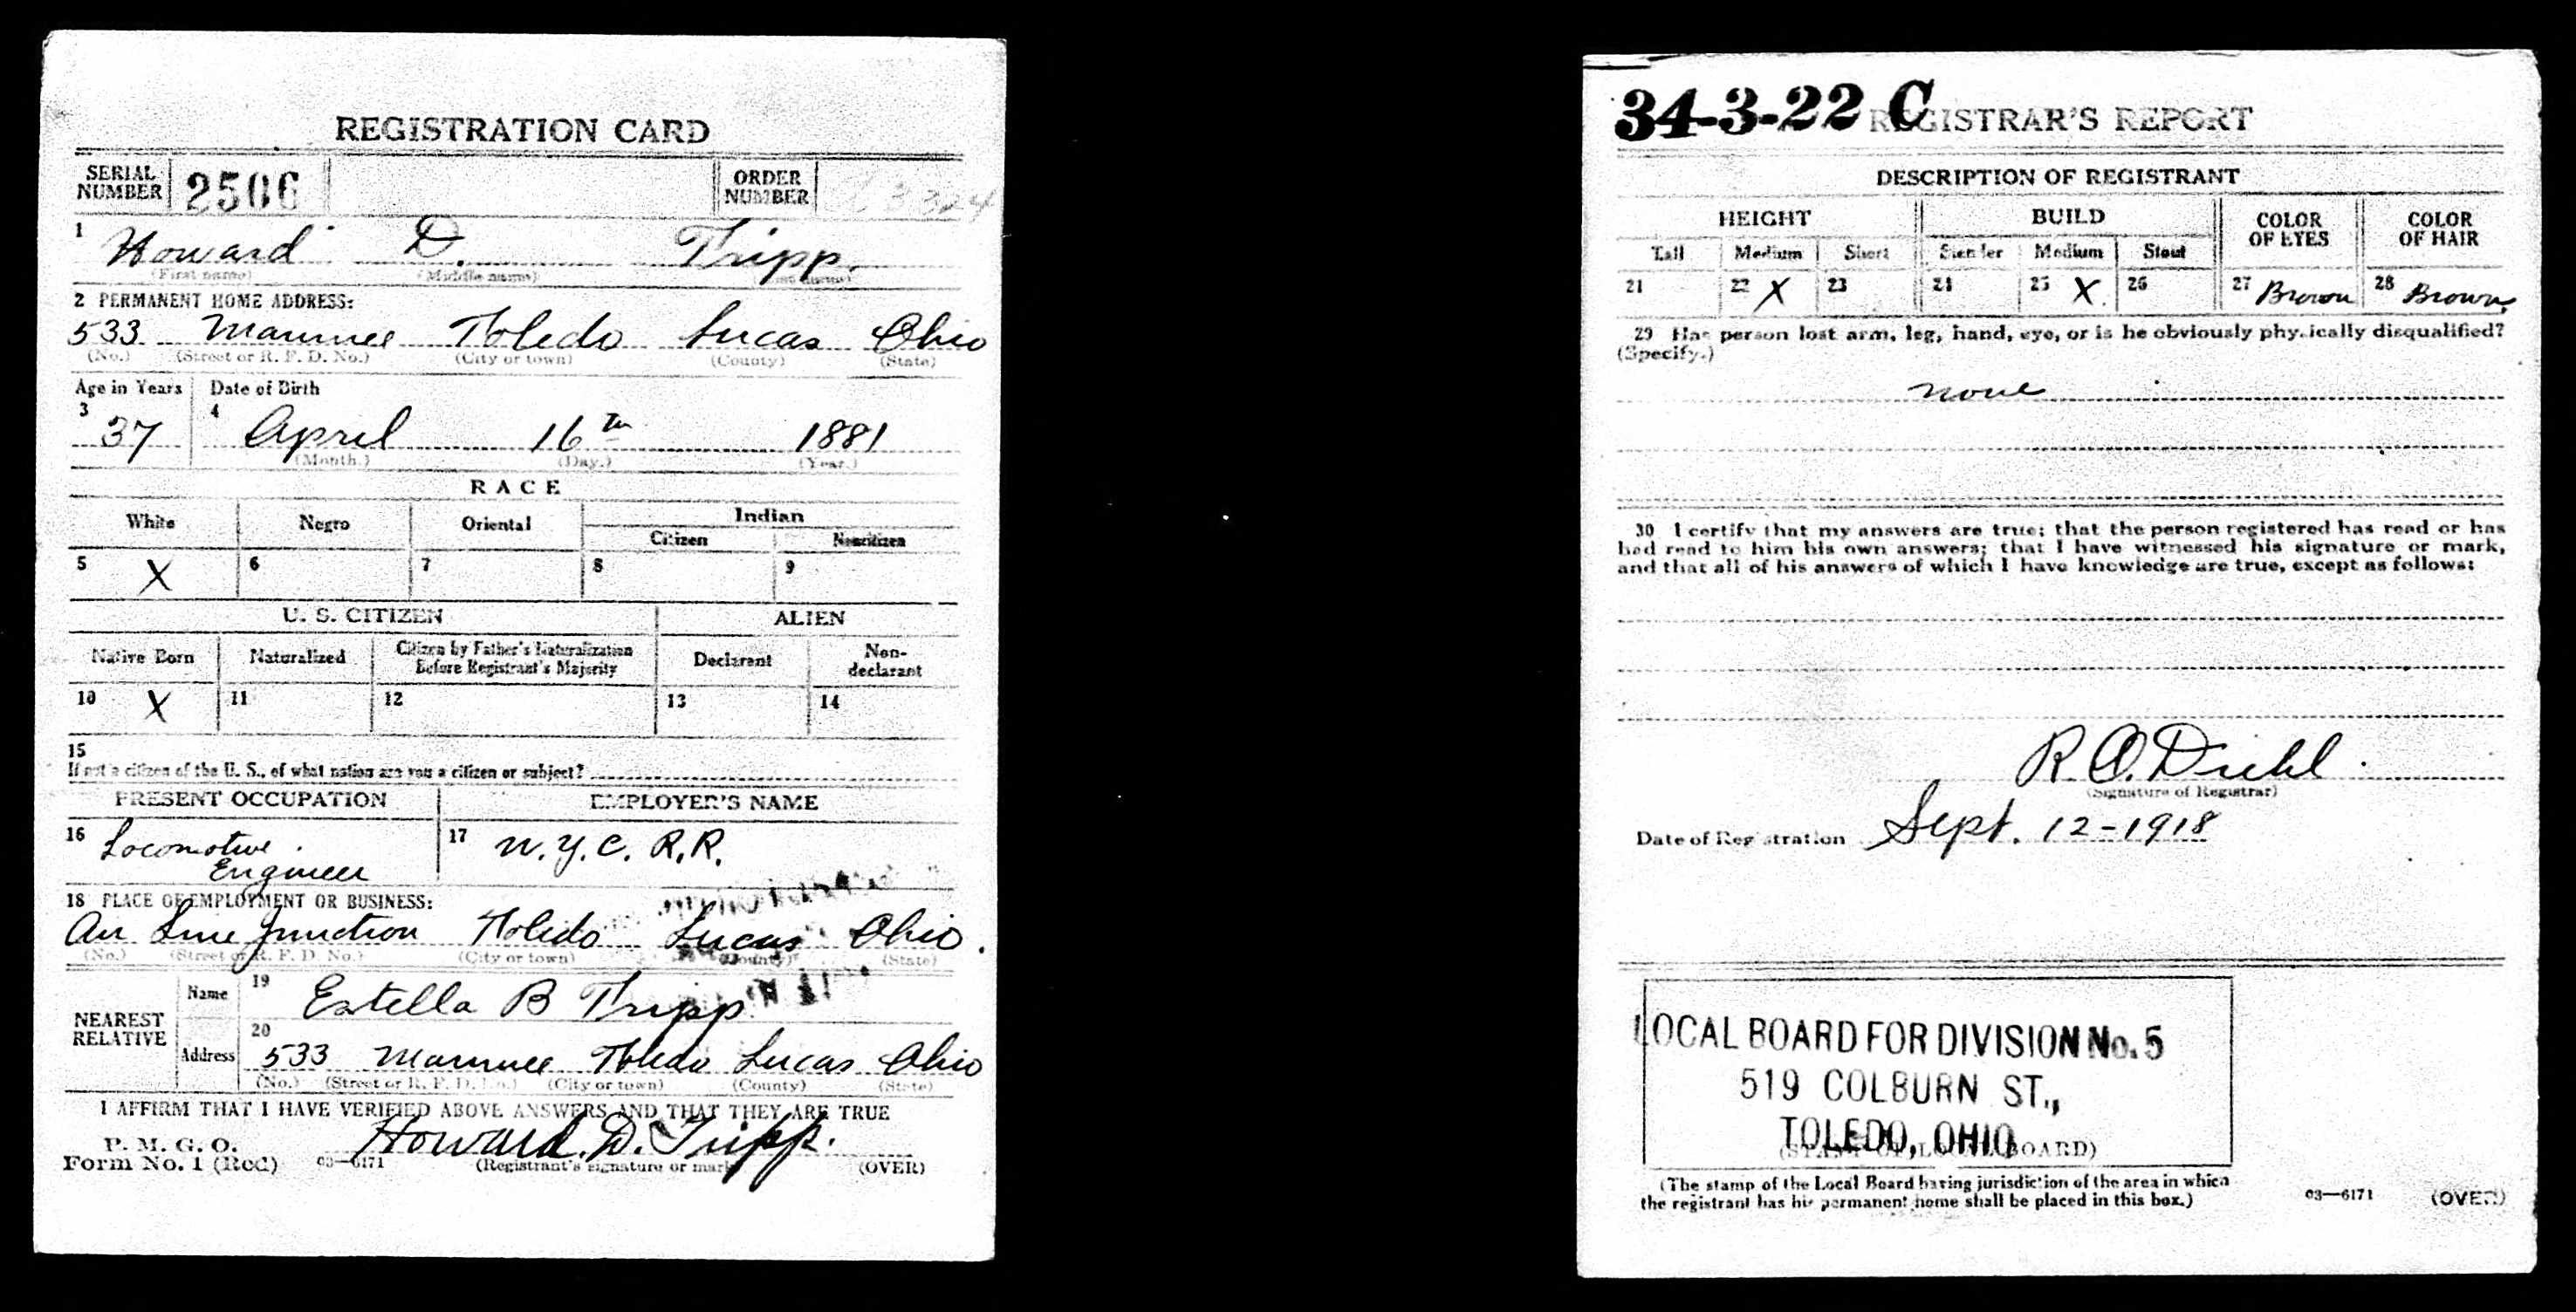 REGISTRATION CARD
SERIAL NUMBER 2506 ORDER NUMBER
1 Howard D. Tripp.
(First name) (Middle name) (Last name)
2 PERMANENT HOME ADDRESS:
533 Maumee Toledo Lucas Ohio
(No.) (Street or R. F. D. No.) (City or town) (County) (State)
Age in Years Date of Birth
3 37 4 April 16th 1881
(Month.) (Day.) (Year.)
RACE
White Negro Oriental Indian
Citizen Noncitizen
5 X 6 7 8 9
U. S. CITIZEN ALIEN
Native Born Naturalized Citizen by Father's Naturalization Before Registrant's Majority Declarant Non-declarant
10 X 11 12 13 14
15
If not a citizen of the U. S., of what nation are you a citizen or subject?
PRESENT OCCUPATION EMPLOYER'S NAME
16 Locomotive Engineer 17 N.Y.C. R.R.
18 PLACE OF EMPLOYMENT OR BUSINESS:
Air Line Junction Toledo Lucas Ohio.
(No.) (Street or R. F. D. No.) (City or town) (County) (State)
NEAREST RELATIVE
Name 19 Estella B Tripp
Address 20 533 Maumee Toledo Lucas Ohio
(No.) (Street or R. F. D. No.) (City or town) (County) (State)
I AFFIRM THAT I HAVE VERIFIED ABOVE ANSWERS AND THAT THEY ARE TRUE
P. M. G. O.
Form No. 1 (Red) 03—6171 Howard. D. Tripp.
(Registrant's signature or mark) (OVER)
34-3-22 C REGISTRAR'S REPORT
DESCRIPTION OF REGISTRANT
HEIGHT BUILD COLOR OF EYES COLOR OF HAIR
Tall Medium Short Slender Medium Stout
21 22 X 23 24 25 X. 26 27 Brown 28 Brown
29 Has person lost arm, leg, hand, eye, or is he obviously physically disqualified?
(Specify.)
none
30 I certify that my answers are true; that the person registered has read or has
had read to him his own answers; that I have witnessed his signature or mark,
and that all of his answers of which I have knowledge are true, except as follows:
R. O. Diehl
(Signature of Registrar)
Date of Registration Sept. 12-1918
LOCAL BOARD FOR DIVISION No. 5
519 COLBURN ST.,
TOLEDO, OHIO
(STAMP OF LOCAL BOARD)
(The stamp of the Local Board having jurisdiction of the area in which
the registrant has his permanent home shall be placed in this box.)
03—6171 (OVER)